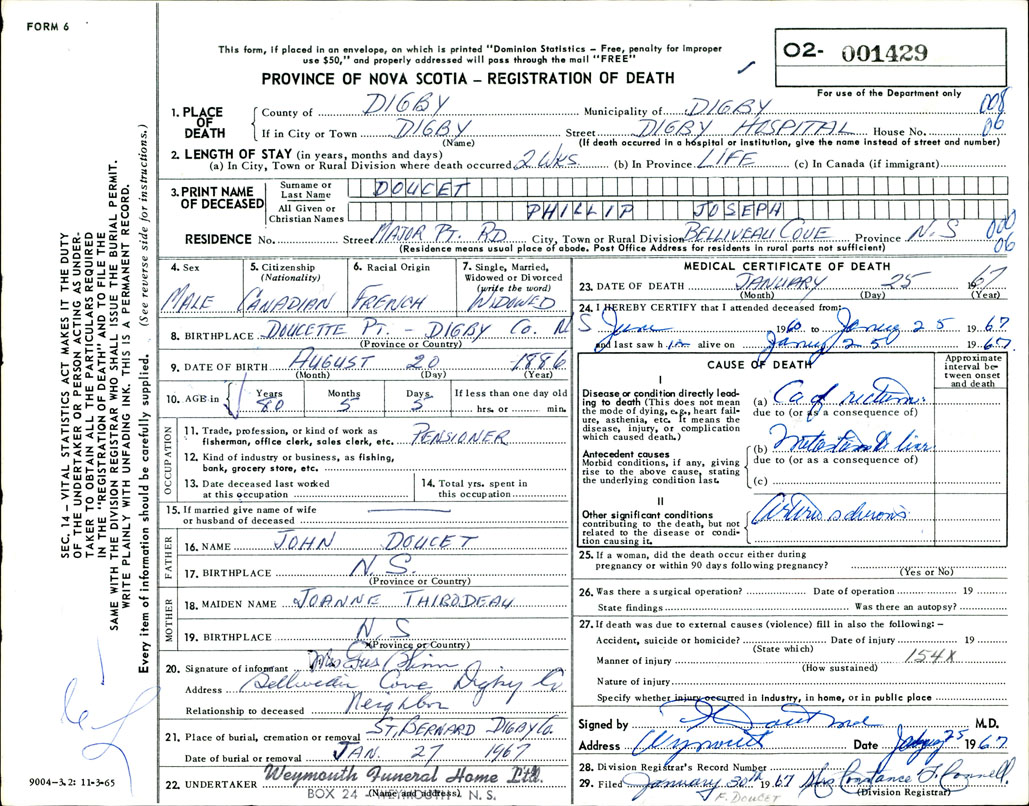 FORM 6
This form, if placed in an envelope, on which is printed "Dominion Statistics – Free, penalty for improper
use $50," and properly addressed will pass through the mail "FREE"
PROVINCE OF NOVA SCOTIA – REGISTRATION OF DEATH
02- 001429
For use of the Department only
1. PLACE OF DEATH County of DIGBY Municipality of DIGBY 008
If in City or Town DIGBY Street DIGBY HOSPITAL House No. 06
(Name) (If death occurred in a hospital or institution, give the name instead of street and number)
2. LENGTH OF STAY (in years, months and days)
(a) In City, Town or Rural Division where death occurred 2 WKS (b) In Province LIFE (c) In Canada (if immigrant)
3. PRINT NAME OF DECEASED Surname or Last Name DOUCET
All Given or Christian Names PHILLIP JOSEPH
RESIDENCE No. Street MAJOR PT. RD City, Town or Rural Division BELLIVEAU COVE Province N.S 000
(Residence means usual place of abode. Post Office Address for residents in rural parts not sufficient) 06
4. Sex 5. Citizenship (Nationality) 6. Racial Origin 7. Single, Married, Widowed or Divorced (write the word)
MALE CANADIAN FRENCH WIDOWED
8. BIRTHPLACE DOUCETTE PT. – DIGBY CO. N S
(Province or Country)
9. DATE OF BIRTH AUGUST 20 1886
(Month) (Day) (Year)
10. AGE in Years Months Days If less than one day old
80 5 5 hrs. or min.
OCCUPATION
11. Trade, profession, or kind of work as
fisherman, office clerk, sales clerk, etc. PENSIONER
12. Kind of industry or business, as fishing,
bank, grocery store, etc.
13. Date deceased last worked
at this occupation
14. Total yrs. spent in
this occupation
15. If married give name of wife
or husband of deceased
FATHER
16. NAME JOHN DOUCET
17. BIRTHPLACE N.S.
(Province or Country)
MOTHER
18. MAIDEN NAME JOANNE THIBODEAU
19. BIRTHPLACE N S
(Province or Country)
20. Signature of informant Mrs Gus
Address Cove Digby Co
Relationship to deceased Neighbor
21. Place of burial, cremation or removal ST. BERNARD DIGBY CO.
Date of burial or removal JAN. 27 1967
22. UNDERTAKER Weymouth Funeral Home Ltd.
(Name and address)
BOX 24 – WEYMOUTH, N. S.
MEDICAL CERTIFICATE OF DEATH
23. DATE OF DEATH JANUARY 25 1967
(Month) (Day) (Year)
24. I HEREBY CERTIFY that I attended deceased from:
June 1960 to 25 1967
and last saw h alive on 25 1967.
CAUSE OF DEATH
Approximate interval between onset and death
I
Disease or condition directly leading to death (This does not mean
the mode of dying, e.g., heart failure, asthenia, etc. It means the
disease, injury, or complication
which caused death.)
(a) Ca of rectum.
due to (or as a consequence of)
Antecedent causes
Morbid conditions, if any, giving
rise to the above cause, stating
the underlying condition last.
(b) liver
due to (or as a consequence of)
(c)
II
Other significant conditions
contributing to the death, but not
related to the disease or condition causing it.
25. If a woman, did the death occur either during
pregnancy or within 90 days following pregnancy?
(Yes or No)
26. Was there a surgical operation? Date of operation 19
State findings Was there an autopsy?
27. If death was due to external causes (violence) fill in also the following: –
Accident, suicide or homicide? Date of injury 19
(State which)
Manner of injury 154X
(How sustained)
Nature of injury
Specify whether injury occurred in industry, in home, or in public place
Signed by M.D.
Address Weymouth Date 25 1967.
28. Division Registrar's Record Number
29. Filed January 30th 1967 Mrs Constance F. Connell
F. DOUCET (Division Registrar)
SEC. 14 – VITAL STATISTICS ACT MAKES IT THE DUTY
OF THE UNDERTAKER OR PERSON ACTING AS UNDER-
TAKER TO OBTAIN ALL THE PARTICULARS REQUIRED
IN THE "REGISTRATION OF DEATH" AND TO FILE THE
SAME WITH THE DIVISION REGISTRAR WHO SHALL ISSUE THE BURIAL PERMIT.
WRITE PLAINLY WITH UNFADING INK. THIS IS A PERMANENT RECORD.
Every item of information should be carefully supplied. (See reverse side for instructions.)
9004–3.2: 11-3-65